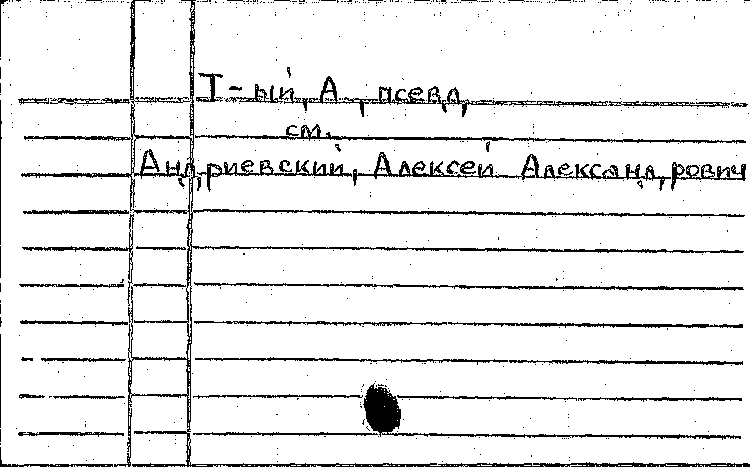 Т-ый, А, псевд,
см.
Андриевский, Алексей Александрович